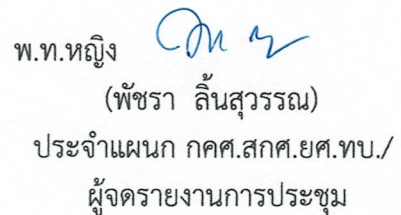 พ.ท.หญิง
(พัชรา ลิ้นสุวรรณ)
ประจำแผนก กคศ.สกศ.ยศ.ทบ./
ผู้จดรายงานการประชุม